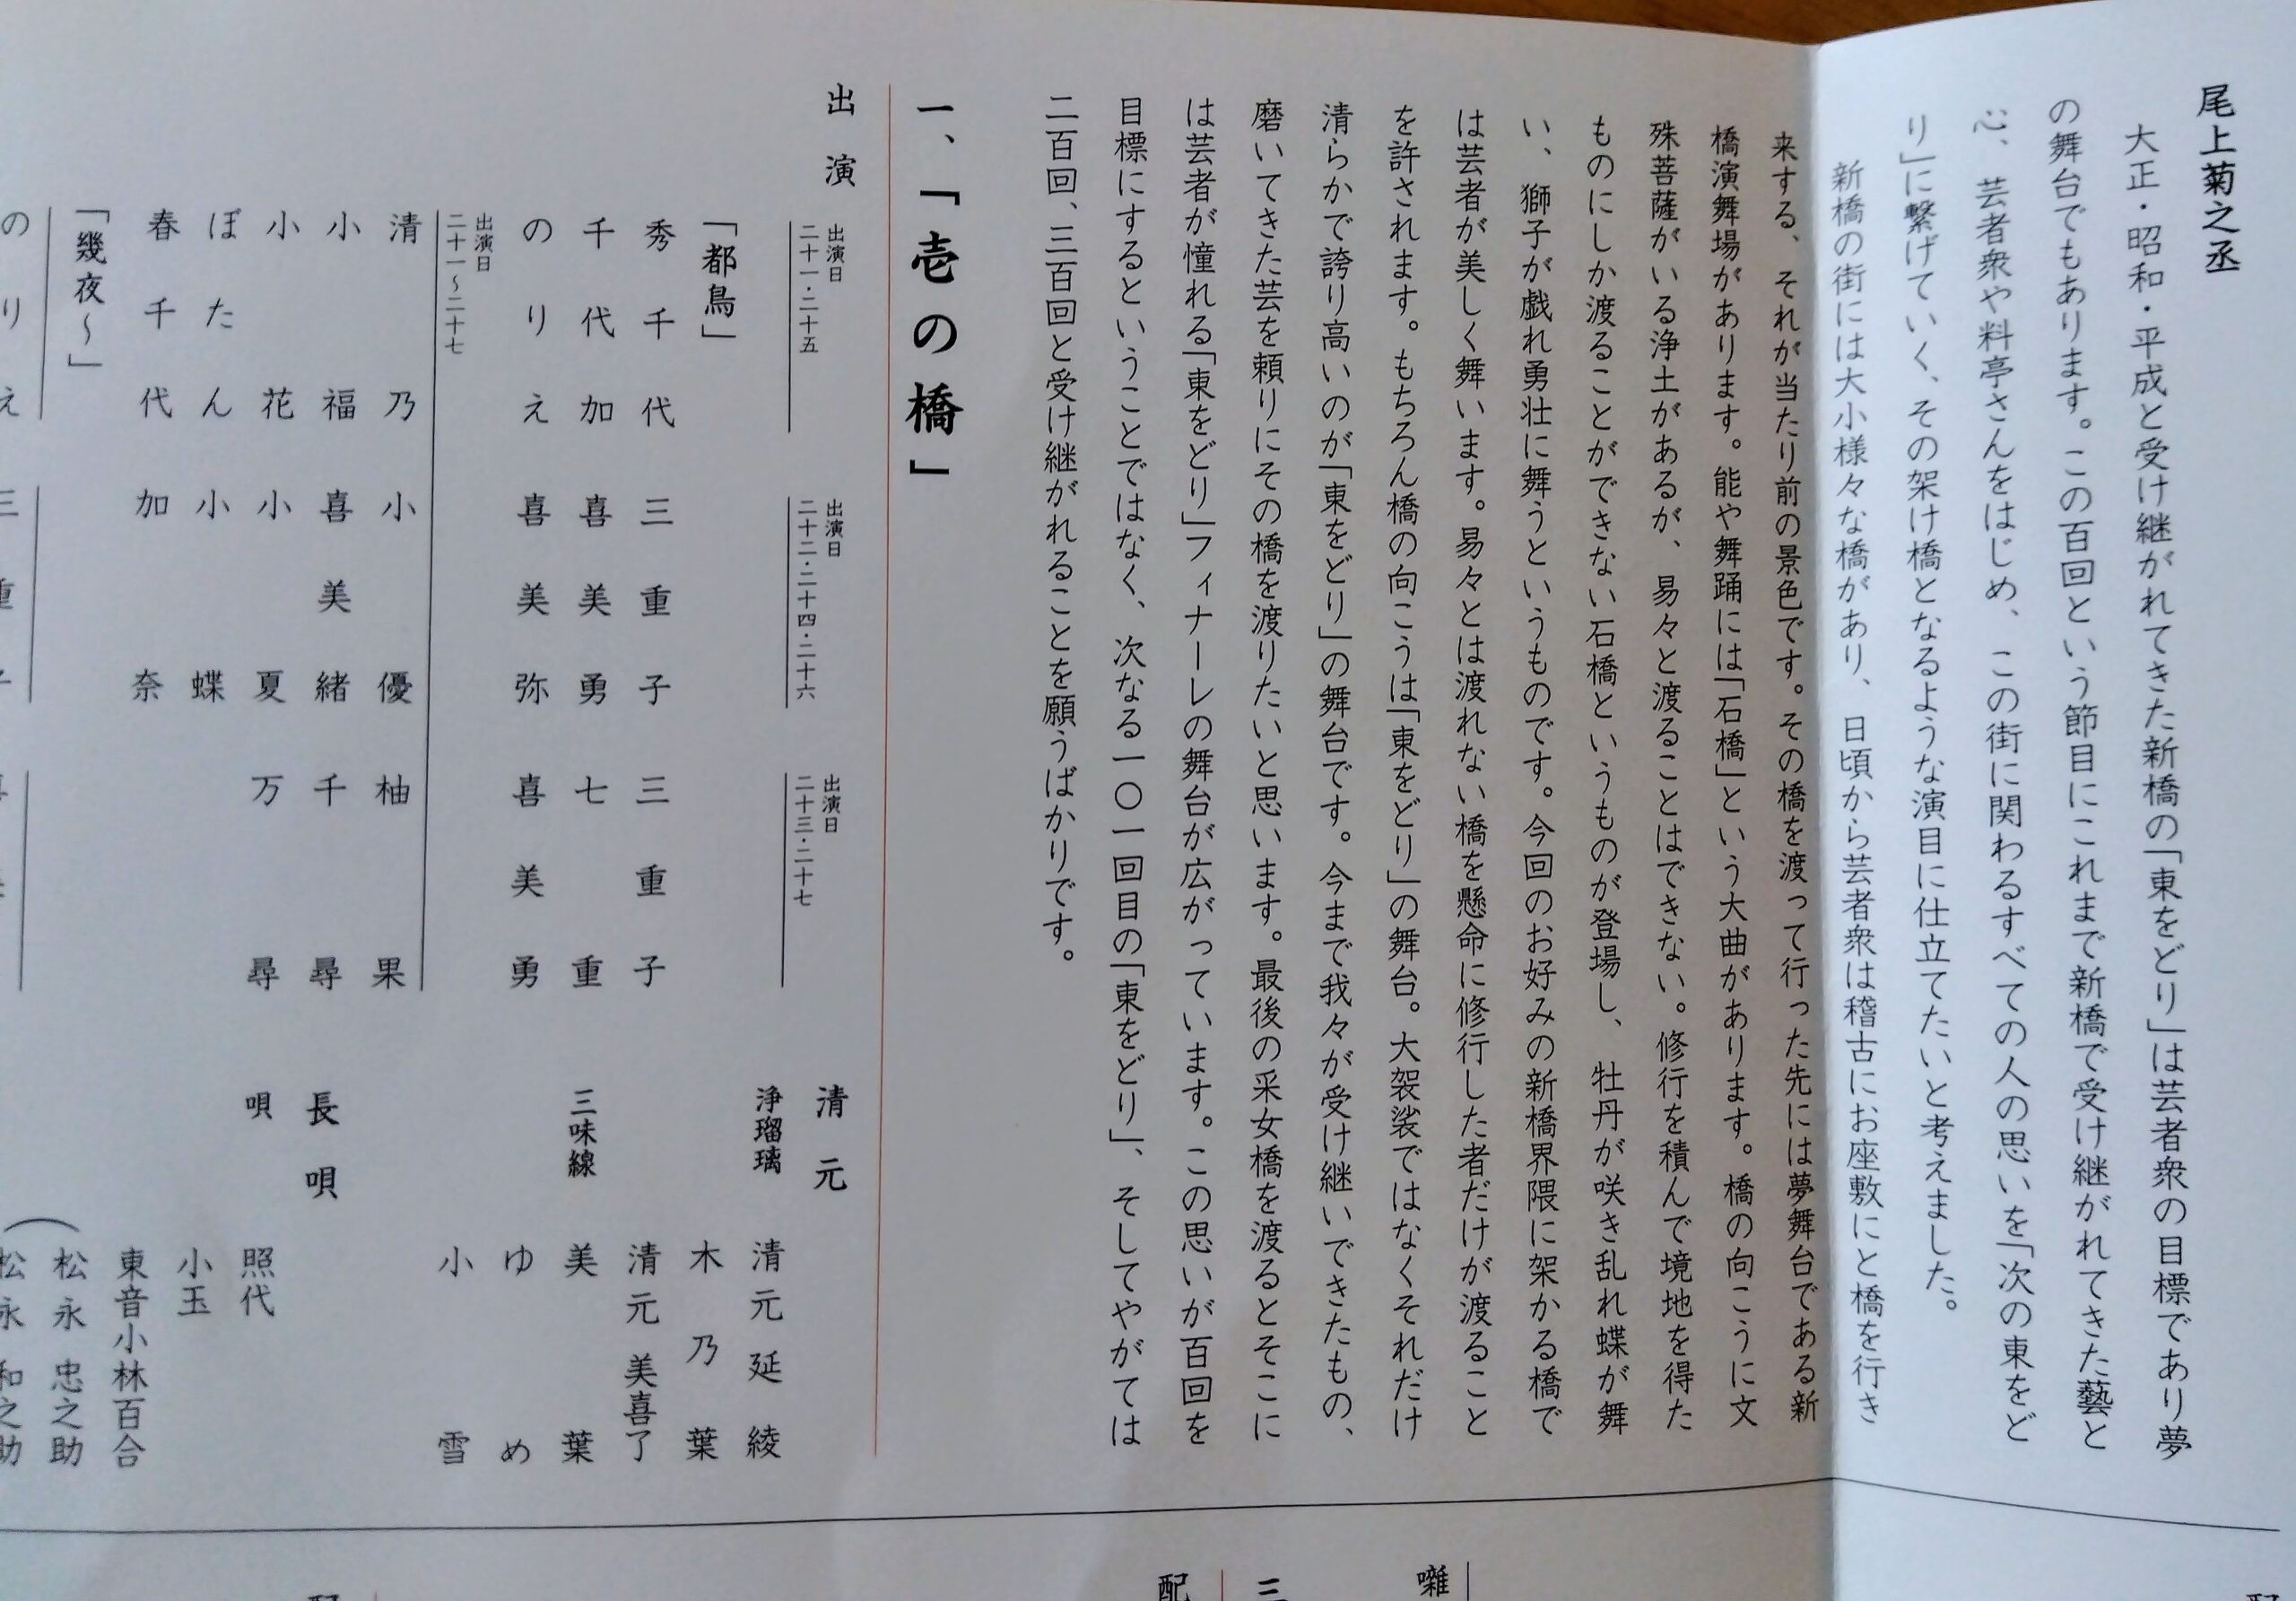 尾上菊之丞
大正・昭和・平成と受け継がれてきた新橋の「東をどり」は芸者衆の目標であり夢
の舞台でもあります。この百回という節目にこれまで新橋で受け継がれてきた藝と
心、芸者衆や料亭さんをはじめ、この街に関わるすべての人の思いを「次の東をど
り」に繋げていく、その架け橋となるような演目に仕立てたいと考えました。
新橋の街には大小様々な橋があり、日頃から芸者衆は稽古にお座敷にと橋を行き
来する、それが当たり前の景色です。その橋を渡って行った先には夢舞台である新
橋演舞場があります。能や舞踊には「石橋」という大曲があります。橋の向こうに文
殊菩薩がいる浄土があるが、易々と渡ることはできない。修行を積んで境地を得た
ものにしか渡ることができない石橋というものが登場し、牡丹が咲き乱れ蝶が舞
い、獅子が戯れ勇壮に舞うというものです。今回のお好みの新橋界隈に架かる橋で
は芸者が美しく舞います。易々とは渡れない橋を懸命に修行した者だけが渡ること
を許されます。もちろん橋の向こうは「東をどり」の舞台。大袈裟ではなくそれだけ
清らかで誇り高いのが「東をどり」の舞台です。今まで我々が受け継いできたもの、
磨いてきた芸を頼りにその橋を渡りたいと思います。最後の采女橋を渡るとそこに
は芸者が憧れる「東をどり」フィナーレの舞台が広がっています。この思いが百回を
目標にするということではなく、次なる一〇一回目の「東をどり」、そしてやがては
二百回、三百回と受け継がれることを願うばかりです。
一、「壱の橋」
出演
出演日
二十一・二十五
出演日
二十二・二十四・二十六
出演日
二十三・二十七
「都鳥」
秀千代 三重子 三重子
千代加 喜美勇 七重
のりえ 喜美弥 喜美勇
出演日
二十一〜二十七
清乃 小優 柚果
小福 喜美緒 千尋
小花 小夏 万尋
ぼたん 小蝶
春千代 加奈
「幾夜〜」
のりえ 三重子
清元
浄瑠璃 清元延綾
木乃葉
清元美喜了
三味線 美葉
ゆめ
小雪
長唄
唄 照代
小玉
東音小林百合
松永忠之助
松永和之助
囃
三
配